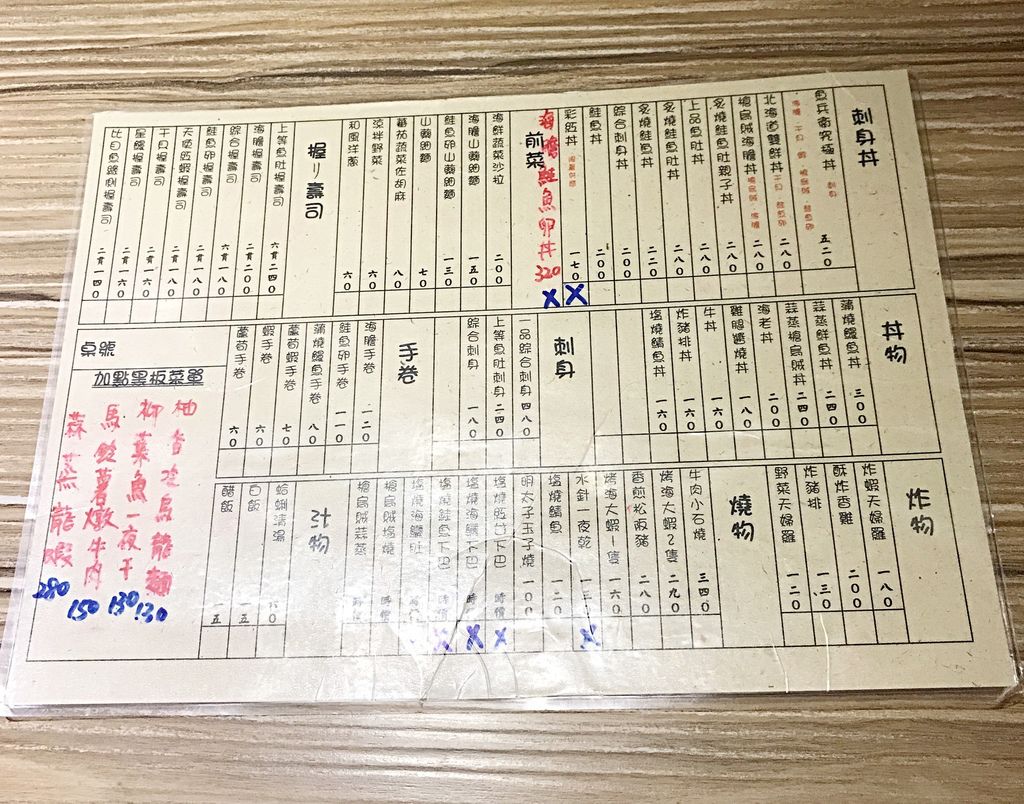 刺身丼
魚兵衛究極丼 五二０
北海道雙鮮丼 二八０
槍烏賊海膽丼 二八０
炙燒鮭魚肚親子丼 二八０
上品魚肚丼 二八０
炙燒鮭魚肚丼 二八０
炙燒鮭魚丼 二二０
綜合刺身丼 二００
鮭魚丼 二００
彩虹丼 一七０ X
海膽鮭魚卵丼 320 X
前菜
海鮮蔬菜沙拉 二００
海膽山藥細麵 一五０
鮭魚卵山藥細麵 一三０
山藥細麵 七０
蕃茄蔬菜佐胡麻 八０
涼拌野菜 六０
和風洋蔥 六０
握り壽司
上等魚肚握壽司 六貫二四０
海膽握壽司 二貫二００
綜合握壽司 六貫二００
鮭魚卵握壽司 二貫一八０
天使紅蝦握壽司 二貫一八０
干貝握壽司 二貫一六０
星鰻握壽司 二貫一六０
比目魚鰭側握壽司 二貫一四０
丼物
蒲燒鰻魚丼 三００
蒜蒸鮮魚丼 二四０
蒜蒸槍烏賊丼 二四０
海老丼 二００
雞腿醬燒丼 一八０
牛丼 一六０
炸豬排丼 一六０
塩燒鯖魚丼 一六０
刺身
一品綜合刺身 四八０
上等魚肚刺身 二四０
綜合刺身 一八０
手卷
海膽手卷 一二０
鮭魚卵手卷 一一０
蒲燒鰻魚手卷 八０
蘆筍蝦手卷 七０
蝦手卷 六０
蘆筍手卷 六０
炸物
炸蝦天婦羅 一八０
酥炸香雞 二００
炸豬排 一三０
野菜天婦羅 一二０
燒物
牛肉小石燒 三四０
烤海大蝦2隻 二九０
香煎松阪豬 二八０
烤海大蝦1隻 一六０
水針一夜乾 一三０ X
塩燒鯖魚 一二０
明太子玉子燒 一００
塩燒旺台下巴 時價 X
塩燒海鱺下巴 時價 X
塩燒鮭魚下巴 X
塩燒海鱺肚
槍烏賊塩燒 時價
槍烏賊蒜蒸 時價
汁物
蛤蜊清湯 六０
白飯 一五
醋飯 一五
桌號
加點黑板菜單
柚香烏龍麵 130
柳葉魚一夜干 130
馬鈴薯燉牛肉 150
蒜蒸龍蝦 280